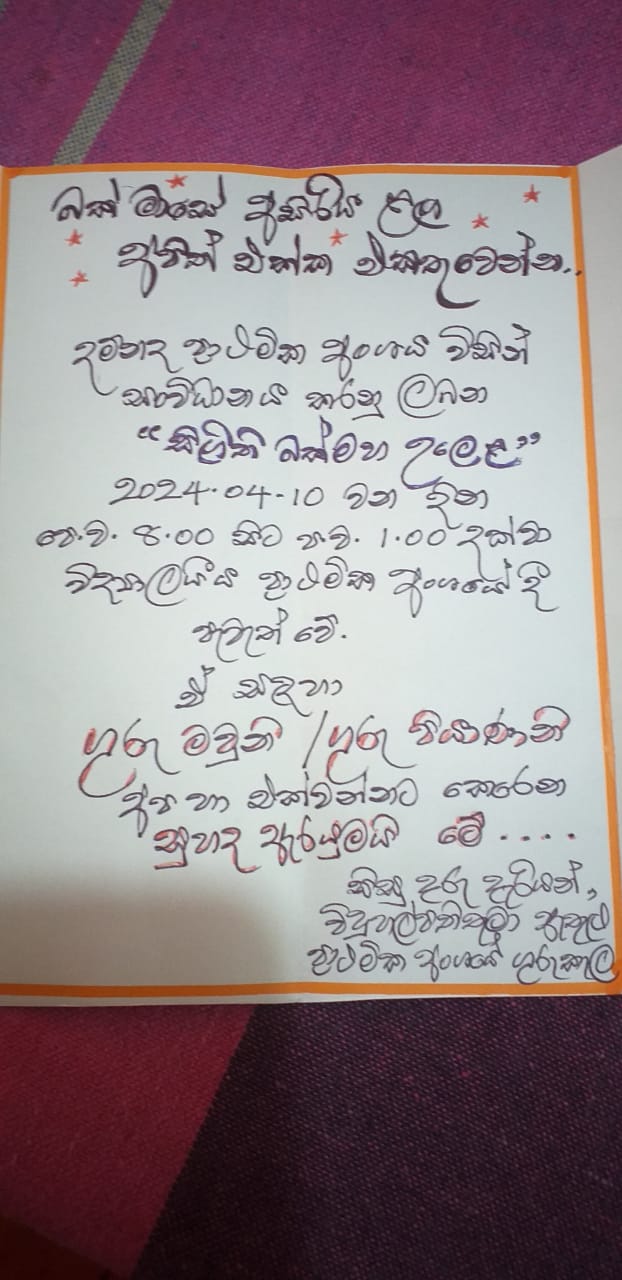 බක් මාසේ අසිරිය ළඟ
අපිත් එක්ක එකතුවෙන්න..
දම්පැද ප්‍රාථමික අංශය විසින්
සංවිධානය කරනු ලබන
"සිඟිති බක්මහ උළෙල"
2024.04.10 වන දින
පෙ.ව. 8.00 සිට ප.ව. 1.00 දක්වා
විද්‍යාලයීය ප්‍රාථමික අංශයේ දී
පැවැත් වේ.
ඒ සඳහා
ගුරු මවුනි / ගුරු පියාණනි
අප හා එක්වන්නට කෙරෙන
සුහද ඇරයුමයි මේ ....
සිසු දරු දැරියන්,
විදුහල්පතිතුමා ඇතුළු
ප්‍රාථමික අංශයේ ගුරුකැල